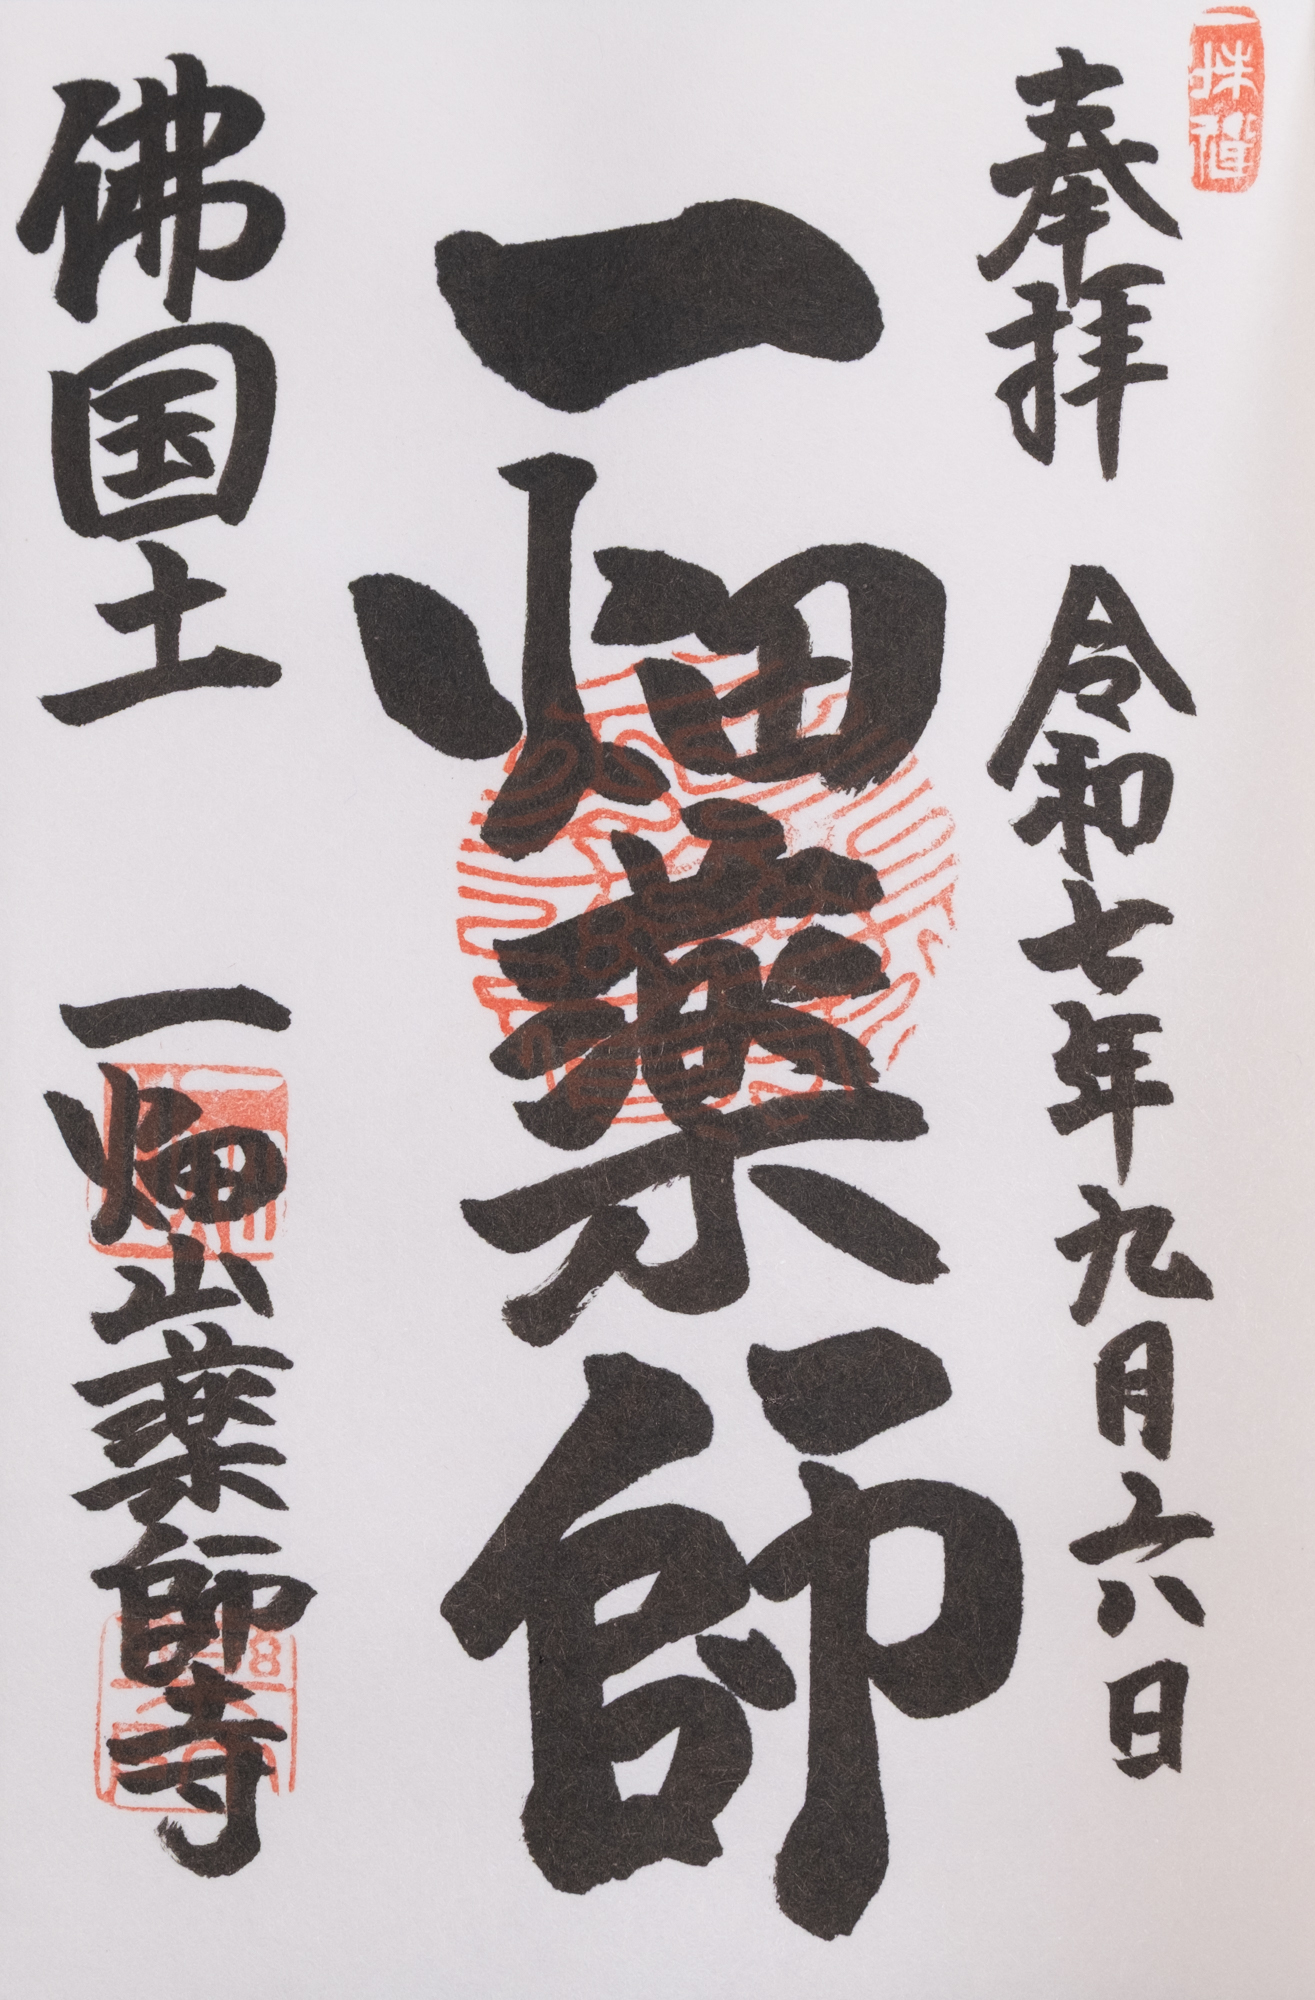 奉拝 令和七年九月六日
一畑薬師
佛国土 一畑山薬師寺